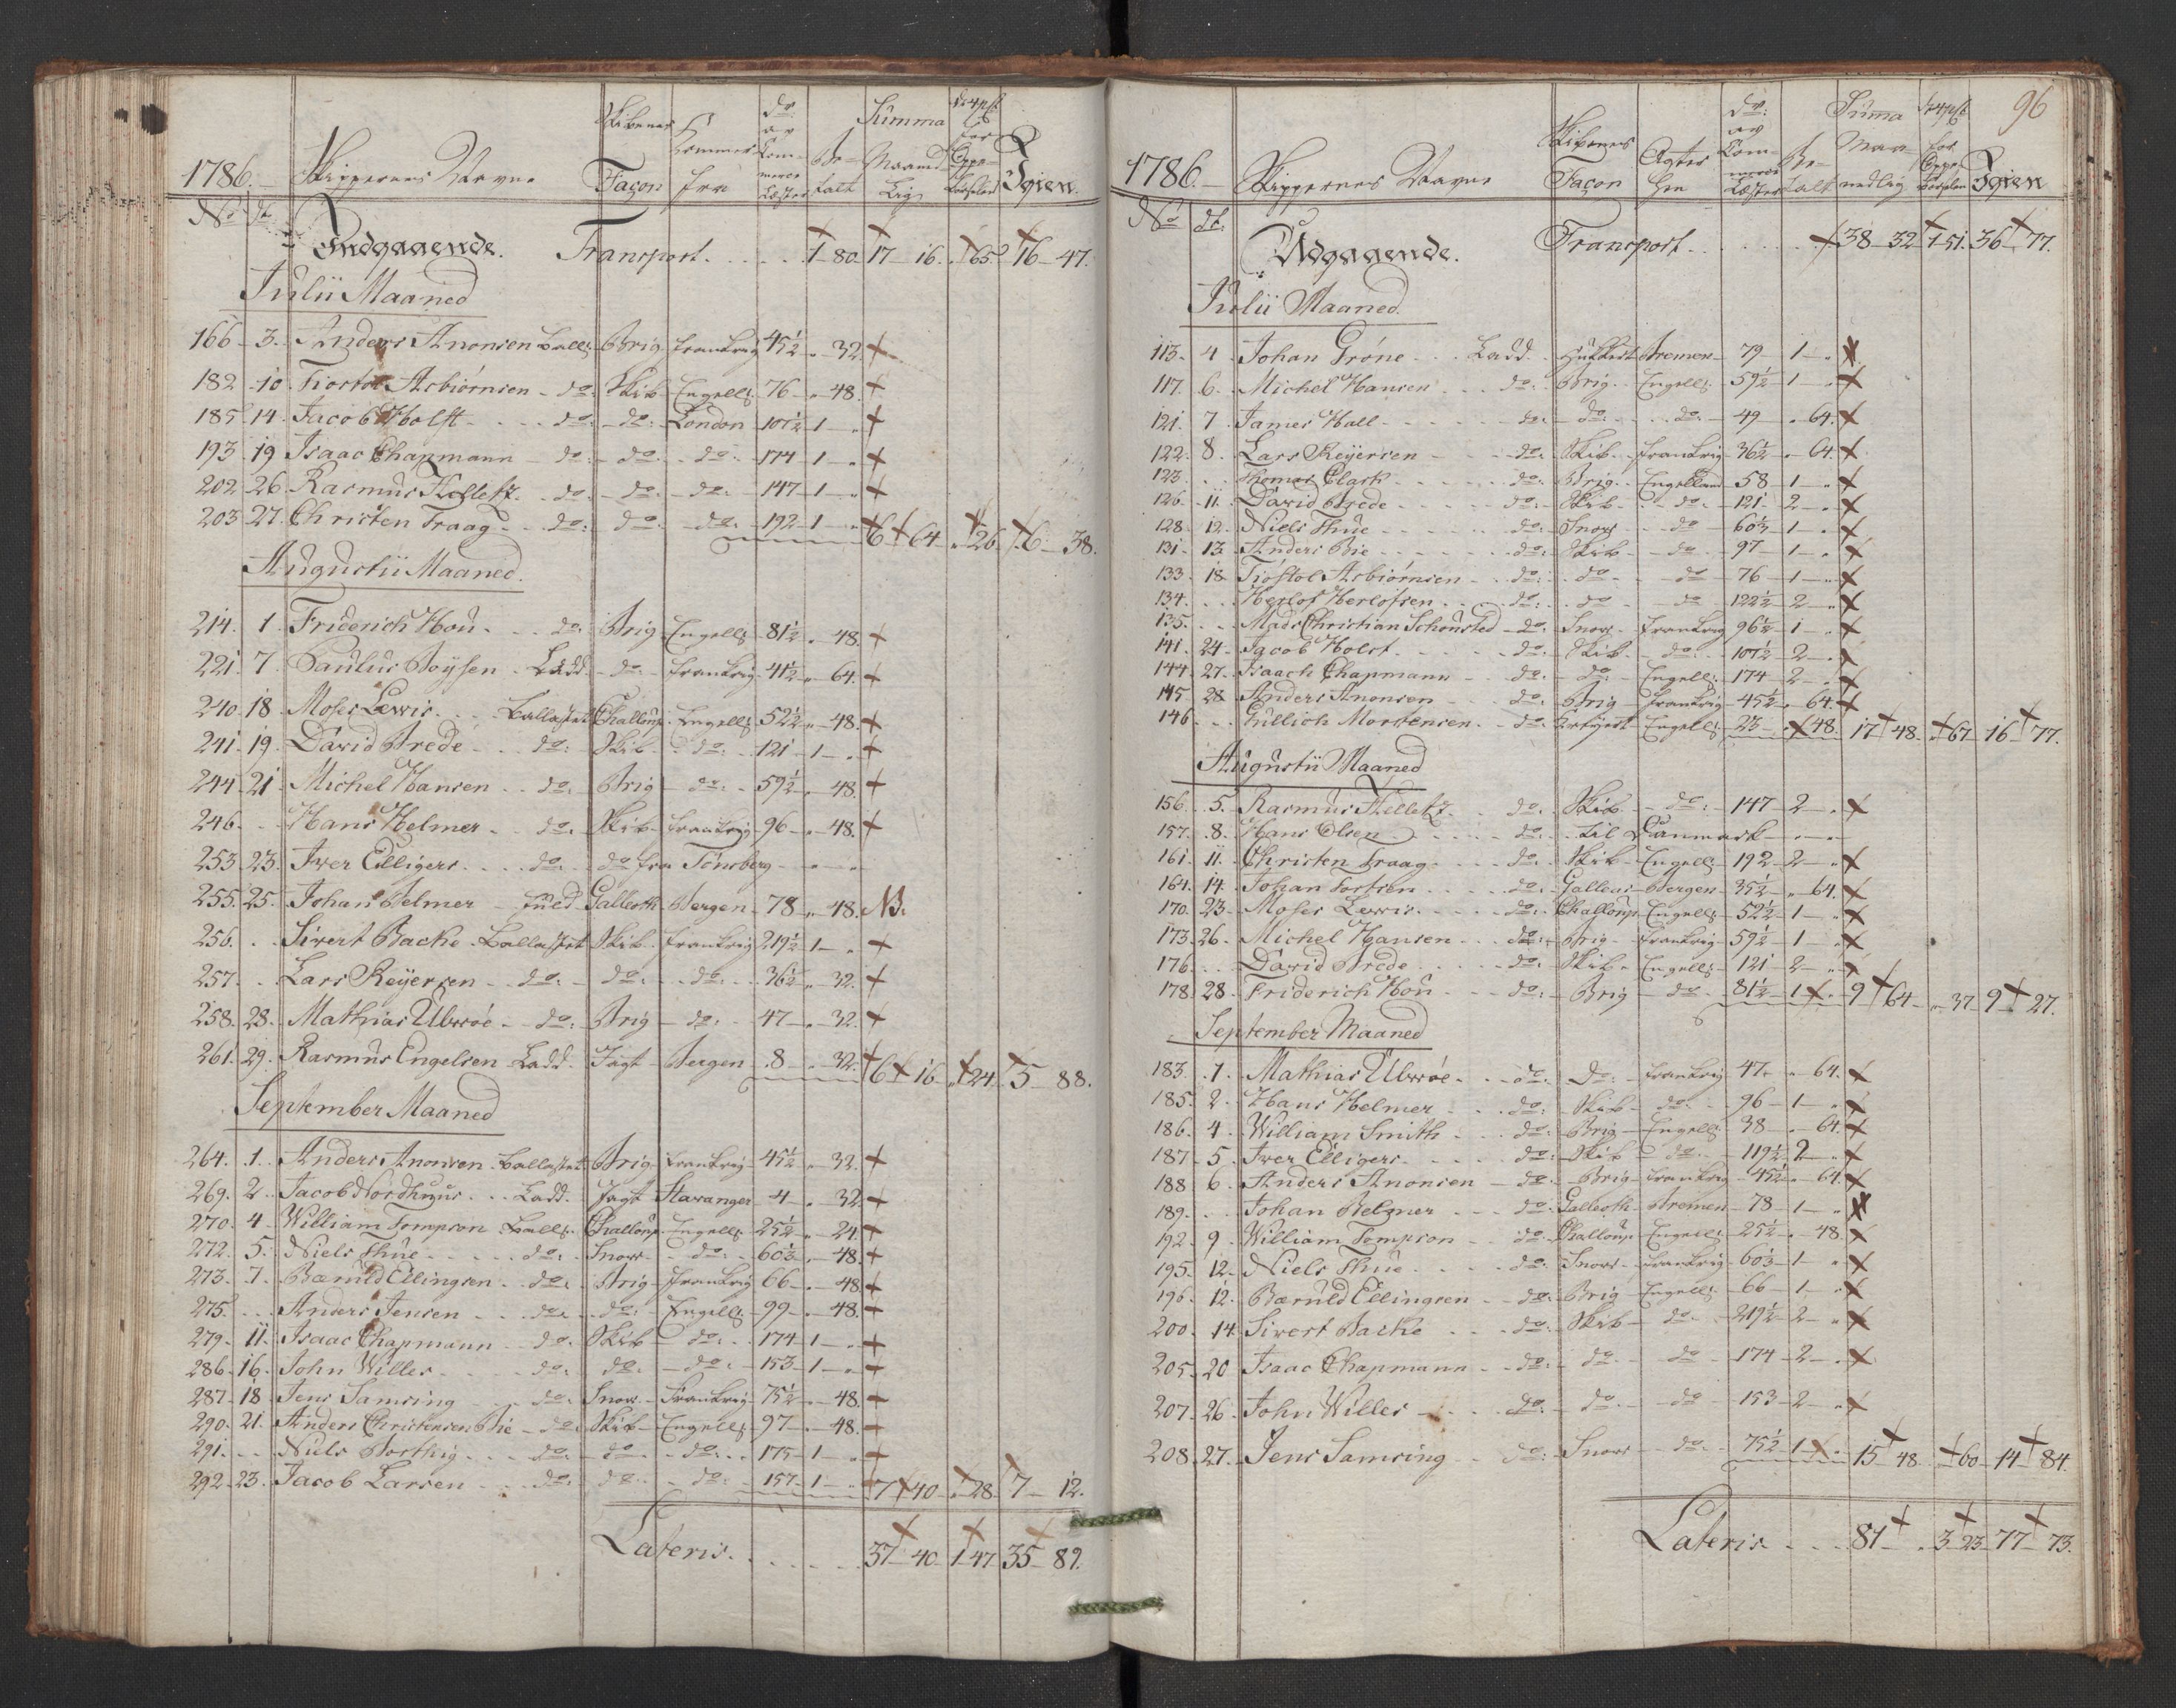 1786. Skippernes Navne Skibenes Façon Kommer fra do. av Commerce Læster Be-talt Summa Maanedlig 4 pCt for Oppebørselen Igien.
No. dt.
Indgaaende. Transport. . . . . 1 - 80. 17 - 16. " 65. 16 - 47.
Julii Maaned
166. 3. Anders Anonsen Ball. Brig Frankrig 45½ " 32.
182. 10. Tiostol Asbiørnsen do. Skib Engell. 76 " 48.
185. 14. Jacob Holst do. do. London 107½ 1 "
193. 19. Isaac Chapmann do. do. do. 174 1 "
202. 26. Rasmus Kelletz do. do. do. 147 1 "
203. 27. Christen Traag do. do. do. 192 1 " 6 64. " 26. 6 38.
Augustii Maaned.
214. 1. Friderich Hou do. Brig Engell. 81½ " 48.
221. 7. Paulus Boysen Ladd do. Frankrig 41½ " 64.
240. 18. Moses Lewis Ballastet Challoup Engell. 52½ " 48.
241. 19. David Brede do. Skib do. 121 1 "
244. 21. Michel Hansen do. Brig do. 59½ " 48.
246. " Hans Helmer do. Skib Frankrig 96 " 48.
253. 23. Iver Elligers do. do fra Tønsberg " "
255. 25. Johan Belmer fuld Galleoth Bergen 78 " 48. NB.
256. " Sivert Backe Ballastet Skib Frankrig 219½ 1 "
257. " Lars Reyersen do. do. do. 36½ " 32.
258. 28. Mathias Ubsøe do. Brig do. 47 " 32.
261. 29. Rasmus Engelsen Ladd. Jagt Bergen 8 " 32. 6 16. " 24. 5 88.
September Maaned
264. 1. Anders Anonsen Ballastet Brig Frankrig 45½ " 32.
269. 2. Jacob Nordhuus Ladd. Jagt Stavanger 4 " 32.
270. 4. William Tompson Ball. Challoup Engell. 25½ " 24.
272. 5. Niels Thue do. Snow do. 60½ " 48.
273. 7. Bæruld Ellingsen do. Brig Frankrig 66 " 48.
275. " Anders Jensen do. do. Engell. 99 " 48.
279. 11. Isaac Chapmann do. Skib do. 174 1 "
286. 16. John Willes do. do. do. 153 1 "
287. 18. Jens Samsing do. Snow Frankrig 75½ " 48.
290. 21. Anders Christensen Bie do. Skib Engell. 97 " 48.
291. " Niels do. do do. 175 1 "
292. 23. Jacob Larsen do. do. do. 157 1 " 7 40. " 28. 7 12.
Lateris. . . . . 37 - 40. 1 47. 35 - 89.
96
1786. Skippernes Navne Skibenes Façon Agter hen do. av Commerce Læster Be-talt Suma Maanedlig 4 pCt for Oppebørselen Igien
No. dt.
Udgaaende. Transport. . . . . 38 - 32. 1 51. 36 77.
Julii Maaned.
113. 4. Johan Grøne Ladd. Hukkert Bremen 79 1 "
117. 6. Michel Hansen do. Brig Engell. 59½ 1 "
121. 7. James Hall do. do. do. 49 " 64.
122. 8. Lars Reyersen do. Skib Frankrig 36½ " 64.
123. " Thomas Clark do. Brig Engelland 58 1 "
126. 11. David Brede do. Skib do. 121 2 "
128. 12. Niels Thue do. Snow do 60½ 1 "
131. 13. Anders Bie do. Skib do. 97 1 "
133. 18. Tiøstol Asbiørnsen do. do do 76 1 "
134. " Herlof Herlofsen do. do do 122½ 2 "
135. " Mads Christian Schousted do. Snow Frankrig 96½ 1 "
141. 24. Jacob Holst do. Skib do. 107½ 2 "
144. 27. Isaach Chapmann do. do. Engell. 174 2 "
145. 28. Anders Anonsen do. Brig Frankrig 45½ " 64.
146. " Gullich Mortensen do. Engell. 23 " 48. 17 48. " 67. 16 77.
Augustii Maaned
156. 5. Rasmus Kelletz do. Skib do. 147 2 "
157. 8. Hans Olsen do. til Danmark " "
161. 11. Christen Traag do. Skib Engell. 192 2 "
164. 14. Johan Torsen do. Galleas Bergen 35½ " 64.
170. 23. Moses Lewis do. Challoup Engell. 52½ 1 "
173. 26. Michel Hansen do. Brig Frankrig 59½ 1 "
176. " David Brede do. Skib Engell. 121 2 "
178. 28. Friderich Hou do. Brig do. 81½ 1 " 9 64. " 37. 9 27.
September Maaned
183. 1. Mathias Ubsøe do. Do. Frankrig 47 " 64.
185. 2. Hans Helmer do. Skib do. 96 1 "
186. 4. William Smith do. Brig Engell. 38 " 64.
187. 5. Iver Elligers do. Skib do. 119½ 2 "
188. 6. Anders Anonsen do. Brig Frankrig 45½ " 64.
189. " Johan Belmer do. Galleoth Bremen 78 1 "
192. 9. William Tompson do. Challoup Engell. 25½ " 48.
195. 12. Niels Thue do. Snow Frankrig 60½ 1 "
196. 12. Bæruld Ellingsen do. Brig Engell. 66 1 "
200. 14. Sivert Backe do. Skib do. 219½ 2 "
205. 20. Isaac Chapmann do. do. do 174 2 "
207. 26. John Willes do. do. do 153 2 "
208. 27. Jens Samsing do. Snow do. 75½ 1 " 15 48. " 60. 14 84.
Lateris . . . 81 " 3 23. 77 73.